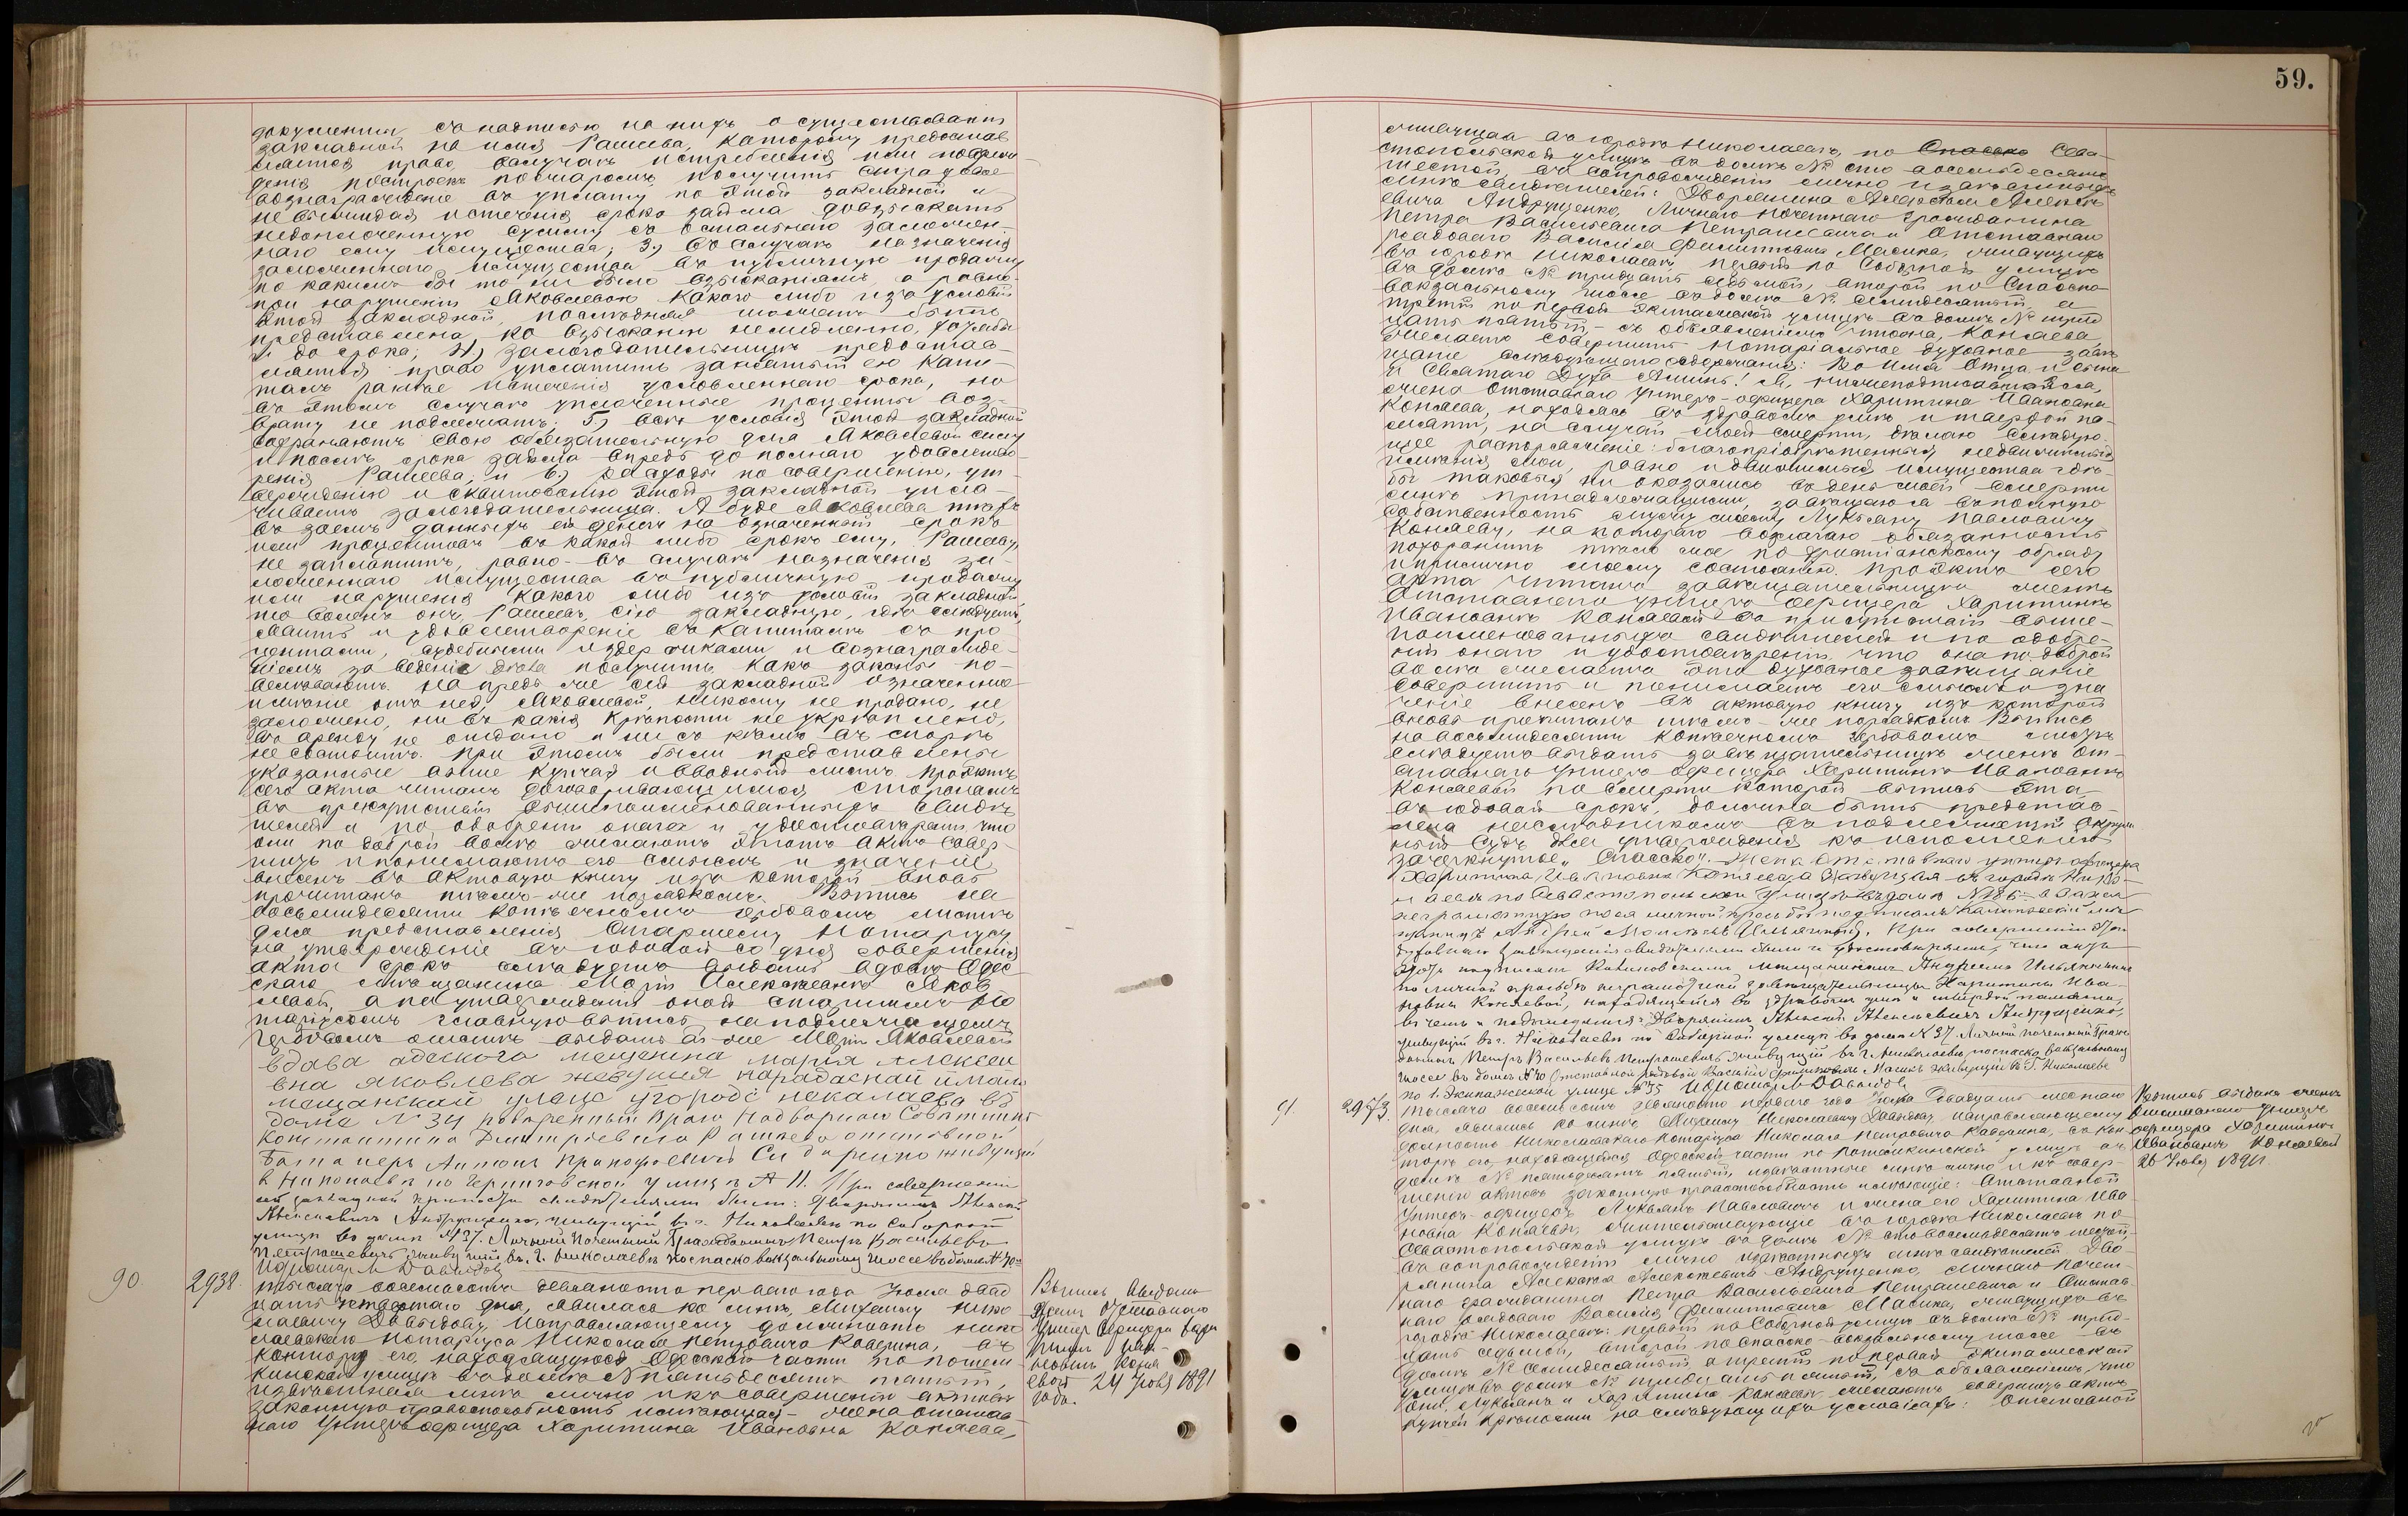 59.
документы съ надписью на нихъ о существованіи
закладной на имя Рашеева, которому предостав
ляется право, въ случаѣ истребленія или повреж-
денія построекъ пожаромъ, получить страховое
вознагражденіе въ уплату по этой закладной и
не выжидая истеченія срока займа довзыскать
недополученную сумму съ остального заложен-
наго ему имущества; 3) въ случаѣ назначенія
заложеннаго имущества въ публичную продажу
по какимъ бы то ни было взысканіямъ, а равно
при нарушеніи Яковлевою какого либо изъ условій
этой закладной, послѣдняя можетъ быть
представлена ко взысканію немедленно, хотя бы
и до срока; 4) залогодательницѣ предостав-
ляется право уплатить занятый ею капи-
талъ ранѣе истеченія условленнаго срока, но
въ этомъ случаѣ уплаченные проценты воз-
врату не подлежатъ; 5) всѣ условія этой закладной
сохраняютъ свою обязательную для Яковлевой силу
и послѣ срока займа впредь до полнаго удовлетво-
ренія Рашеева, и 6) расходы по совершенію, ут
вержденію и сквитованію этой закладной упла-
чиваетъ залогодательница. А буде Яковлева тѣхъ
въ заемъ данныхъ ей денегъ на означенный срокъ
или процентовъ въ какой либо срокъ ему, Рашееву,
не заплатитъ, равно въ случаѣ назначенія за-
ложеннаго имущества въ публичную продажу
или нарушенія какого либо изъ условій закладной
то воленъ онъ, Рашеевъ, сію закладную, гдѣ слѣдуетъ,
явить и удовлетвореніе въ капиталѣ съ про
центами, судебными издержками и вознагражде-
ніемъ за веденіе дѣла получить, какъ законы по-
велѣваютъ. Напредь же сей закладной означенное
имѣніе отъ нея, Яковлевой, никому не продано, не
заложено, ни въ какія крѣпости не укрѣплено,
въ аренду не отдано и ни съ кѣмъ въ спорѣ
не состоитъ. При этомъ были представлены
указанные выше купчая и вводный листъ. Проектъ
сего акта читанъ договаривающимся сторонамъ
въ присутствіи вышепоименованныхъ свидѣ
телей и по одобреніи онаго и удостовѣреніи, что
они по доброй волѣ желаютъ этотъ актъ совер-
шить и понимаютъ его смыслъ и значеніе
внесенъ въ актовую книгу изъ которой вновь
прочитанъ тѣмъ-же порядкомъ. Выпись на
восьмидесяти копѣечномъ гербовомъ листѣ
для представленія Старшему Нотаріусу
на утвержденіе въ годовой со дня совершенія
акта срокъ слѣдуетъ выдать вдовѣ Одес
скаго мѣщанина Маріи Алексѣевнѣ Яков
левой, а по утвержденіи оной старшимъ Но
таріусомъ главную выпись на подлежащемъ
гербовомъ листѣ выдать ей-же Маріи Яковлевой
вдова адескога мещенина мария алексеи
вна яковлева
дома N 34 Надворнаго Совѣтника
Константина Дмитріевича Рашеева отставной
Батаперъ Антонъ Прокофьевичъ Сидоренко живущій
в Николаевѣ по Черниговской улицѣ № 11. При совершеніи
сей закладной крѣпости свидѣтелями были: Дворянинъ Алексѣй
Алексѣевичъ Андрущенко, живущій въ г. Николаевѣ по Соборной
улицѣ въ домѣ № 37. Личный Почетный Гражданинъ Петръ Васильевъ
Петрашевичъ живущій въ г. Николаевѣ по Спасковокзальному шоссе въ домѣ № 70
И. д. Нотар. М. Давыдовъ
90. 2938. тысяча восемьсотъ девяносто перваго года Іюля двад
цать четвертаго дня, явилась ко мнѣ, Михаилу Нико
лаевичу Давыдову, исправляющему должность Нико
лаевскаго Нотаріуса Николая Петровича Каверина, въ
контору его, находящуюся Одесской части по Потем-
кинской улицѣ въ домѣ № пятьдесятъ пятый,
извѣстная мнѣ лично и къ совершенію актовъ
законную правоспособность имѣющая - жена отстав
наго Унтеръ-офицера Харитина Ивановна Коняева,
Выпись выдана
женѣ отставного
Унтеръ офицера Хари
тинѣ Ива-
новнѣ Коня
евой 24 Іюля 1891
года.
живущая въ городѣ Николаевѣ, по Спасско Сева-
стопольской улицѣ въ домѣ № сто восемьдесятъ
шестой, въ сопровожденіи лично извѣстныхъ
мнѣ свидѣтелей: Дворянина Алексѣя Алексѣ
евича Андрущенко, личнаго почетнаго гражданина
Петра Васильевича Петрашевича и Отставнаго
рядоваго Василія Филипповича Масика, живущихъ
въ городѣ Николаевѣ, первый по Соборной улицѣ
въ домѣ № тридцать седьмой, второй по Спаско-
вокзальному шоссе въ домѣ № семидесятый, а
третій по первой Экипажеской улицѣ въ домѣ № трид
цать пятый, - съ объявленіемъ, что она, Коняева,
желаетъ совершить нотаріальное духовное завѣ
щаніе слѣдующаго содержанія: Во имя Отца и Сына
и Святаго Духа Аминь! Я, нижеподписавшаяся,
жена Отставнаго Унтеръ-офицера Харитина Ивановна
Коняева, находясь въ здравомъ умѣ и твердой па-
мяти, на случай моей смерти, дѣлаю слѣдую-
щее распоряженіе: благопріобрѣтенныя недвижимыя
имѣнія мои, равно и движимыя имущества гдѣ-
бы таковыя ни оказались въ день моей смерти
мнѣ принадлежащими, завѣщаю я въ полную
собственность мужу моему Лукьяну Павловичу
Коняеву, на котораго возлагаю обязанность
похоронить тѣло мое по христіанскому обряду
и прилично моему состоянію. Проэктъ сего
акта читанъ завѣщательницѣ женѣ
Отставнаго унтеръ офицера Харитинѣ
Ивановнѣ Коняевой въ присутствіи выше-
поименованныхъ свидѣтелей и по одобре-
ніи онаго и удостовѣреніи, что она по доброй
волѣ желаетъ это духовное завѣщаніе
совершить и понимаетъ его смыслъ и зна
ченіе внесенъ въ актовую книгу изъ которой
вновь прочитанъ тѣмъ-же порядкомъ. Выпись
на восьмидесяти копѣечномъ гербовомъ листѣ
слѣдуетъ выдать завѣщательницѣ женѣ От-
ставнаго Унтеръ офицера Харитинѣ Ивановнѣ
Коняевой по смерти которой выпись эта
въ годовой срокъ, должна быть представ-
лена наслѣдникомъ въ подлежащій Окруж
ный Судъ для утвержденія къ исполненію
зачеркнутое „Спасско“. Жена отставнаго унтеръ офицера
Харитина Ивановна Коняева живущая въ городѣ Нико-
лаевѣ по Севастопольской улицѣ въ домѣ № 186 а за нея
неграмотную по ея личной просьбѣ подписалъ мѣ
щанинъ Андрей При совершеніи этого
духовнаго завѣщанія свидѣтелями были и удостовѣряемъ, что актъ
этотъ подписанъ мѣщаниномъ Андреемъ
по личной просьбѣ неграмотной завѣщательницы Харитины Ива-
новны Коняевой, находящейся въ здравомъ умѣ и твердой памяти,
въ чемъ и подписуемся: Дворянинъ Алексѣй Алексѣевичъ Андрущенко,
живущій въ г. Николаевѣ по Соборной улицѣ въ домѣ № 37. Личный почетный Граж
данинъ Петръ Васильевъ Петрашевичъ живущій въ г. Николаевѣ по спаско вокзальному
шоссе въ домѣ № 70 Отставной рядовой Василій Филиповичъ Масикъ живущій въ г. Николаевѣ
по 1. Экипажеской улице № 35 И. д. Нотар. М. Давыдовъ
91. 2973. Тысяча восемьсотъ девяносто перваго года Іюля двадцать шестаго
дня, явились ко мнѣ, Михаилу Николаевичу Давыдову, исправляющему
должность Николаевскаго Нотаріуса Николая Петровича Каверина, въ кон
тору его, находящуюся Одесской части по Потемкинской улицѣ въ
домѣ № пятьдесятъ пятый, извѣстные мнѣ лично и къ совер-
шенію актовъ законную правоспособность имѣющіе: Отставной
Унтеръ-офицеръ Лукьянъ Павловичъ и жена его Харитина Ива
новна Коняевы, жительствующіе въ городѣ Николаевѣ по
Севастопольской улицѣ въ домѣ № сто восемьдесятъ шестой,
въ сопровожденіи лично извѣстныхъ мнѣ свидѣтелей Дво-
рянина Алексѣя Алексѣевича Андрущенко, личнаго почет-
наго гражданина Петра Васильевича Петрашевича и Отстав-
наго рядоваго Василія Филипповича Масика, живущихъ въ
городѣ Николаевѣ: первый по Соборной улицѣ въ домѣ № трид-
цать седьмой, второй по Спаско-вокзальному шоссе въ
домѣ № семидесятый, а третій по первой Экипажеской
улицѣ въ домѣ № тридцать пятый, съ объявленіемъ, что
они, Лукьянъ и Харитина Коняевы, желаютъ совершить актъ
купчей крѣпости на слѣдующихъ условіяхъ: Отставной
Выпись выдана женѣ
отставного Унтеръ
офицера Харитинѣ
Ивановнѣ Коняевой
26 Іюля 1891 г.